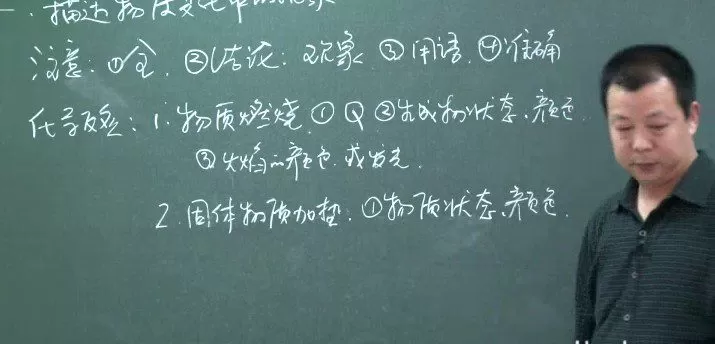 一、描述物质变化中的现象
注意：①全 ②结论：现象 ③用语 ④准确
化学反应：1、物质燃烧 ①Q ②生成物状态、颜色
③火焰的颜色或发光
2、固体物质加垫：①物质状态、颜色